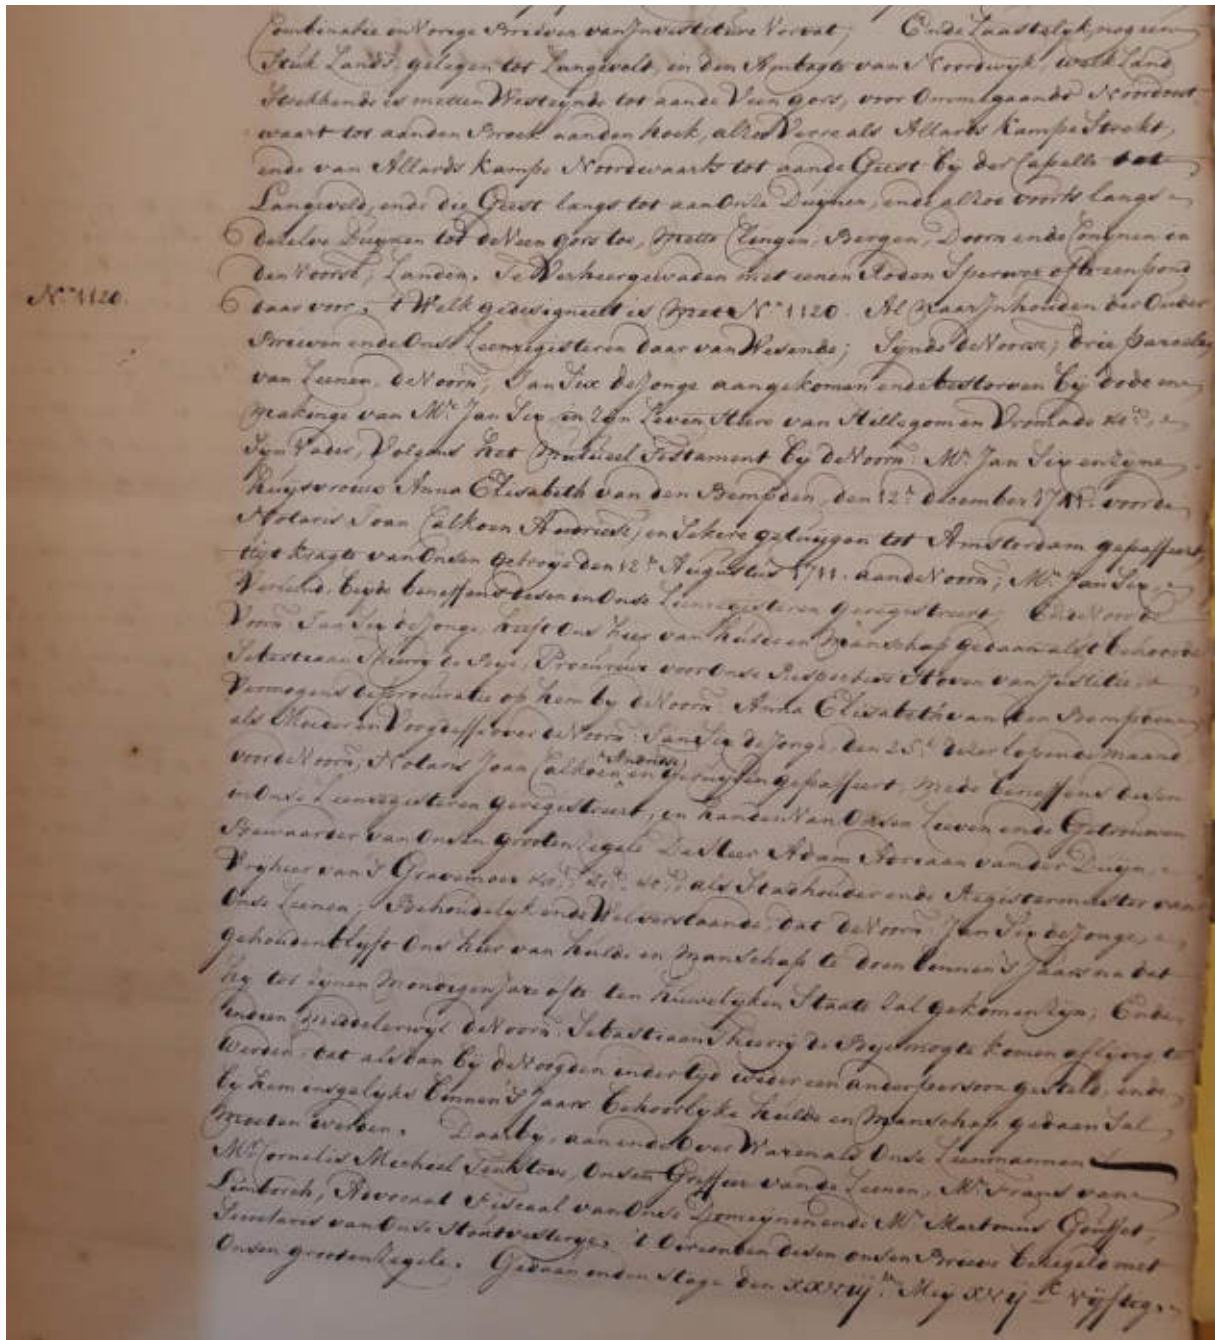 Combinatie en Vorige Brieven van Investiture Vervat; Ende Laastelyk, nog een
Stuk Lands, gelegen tot Langevelt, in den Ambagte van Noordwyk, welk Land
Strekkende is metten Westeynde tot aande Veen gors, voor Ommegaande Noordoost
waart tot aanden Broek aanden hoek, alzo Verre als Allards Kampe Strekt,
ende van Allards Kampe Noordwaarts tot aande Geest by der Capelle tot
Langeveld, ende die Geest langs tot aan Onze Duynen, ende alzoe voorts langs
dezelve Duynen tot de Veen gors toe, Mette Clingen, Bergen, Doorn ende Conynen in
den Voorsz; Landen. Te Verheergewaden met eenen Roden Sperwer ofte een pond
No. 1120.
daar voor. 't Welk gedesigneert is Met No. 1120. Al Naar Inhouden der Ouder
Brieven ende Onse Leenregisteren daar van Wesende; Synde de Voorsz; drie parceelen
van Leenen, de Voorn; Jan Six de Jonge aangekomen ende bestorven bij dode en
makinge van Mr. Jan Six in zyn Leven Heere van Hillegom en Vromade &c:
Syn Vader, Volgens het Mutueel Testament by de Voorn: Mr. Jan Six en zyne
huysvrouw Anna Elisabeth van den Bempden, den 12e december voorde
Notaris Joan Calkoen Andriesz, en Sekere getuygen tot Amsterdam gepasseert,
uyt kragte van Onsen Octroye den 12e Augustus aan de Voorn; Mr. Jan Six,
Verleend, beyde beneffens desen in Onse Leenregisteren Geregistreert; Ende Voor de
Voorn: Jan Six de Jonge, heeft Ons hier van hulde en Manschap gedaan alst behoorde
Sebastiaan Thierry de Bye, Procureur voor Onse Respective Hoven van Justitie,
Vermogens de procuratie op hem by de Voorn: Anna Elisabeth van den Bempden
als Moeder en Voogdesse over de Voorn: Jan Six de Jonge, den 25e dezer lopende maand
voor de Voorn; Notaris Joan Calkoen Andriesz, en getuygen gepasseert, Mede beneffens desen
in Onse Leenregisteren Geregistreert, in handen Van Onsen Lieven ende Getrouwen
Bewaarder van Onsen grooten Zegele De Heer Adam Adriaan van der Duyn,
Vryheer van 's Gravemoer &c: &c: &c: als Stadhouder ende Registermeester van
Onse Leenen; Behoudelyk ende Welverstaande, dat de Voorn: Jan Six de Jonge,
gehouden blyft Ons hier van hulde en Manschap te doen binnen 's Jaars na dat
hy tot zynen Mondigen Jare ofte ten huwelyken Staate Zal gekomen zyn; Ende
indien middelerwyl de Voorn: Sebastiaan Thierry de Bye mogte komen aflyvig te
werden, dat als dan bij de Voogden inder tyd weder een ander persoon gesteld, ende
by hem ensgelyks binnen 's Jaars behoorlyke hulde en Manschap gedaan Sal
Moeten werden. Daar by, aan ende Over Waren als Onse Leenmannen
Mr. Cornelis Michiel Onsen Griffier van de Leenen, Mr. Frans van
Limborch, Advocaat Fiscaal van Onse Domeynen ende Mr. Martinus Gousset,
Secretaris van Onse Houtvesterye. 't Oirconden desen onsen Brieve bezegeld met
Onsen grooten Zegele. Gedaan in den Hage den Mey vyftig.